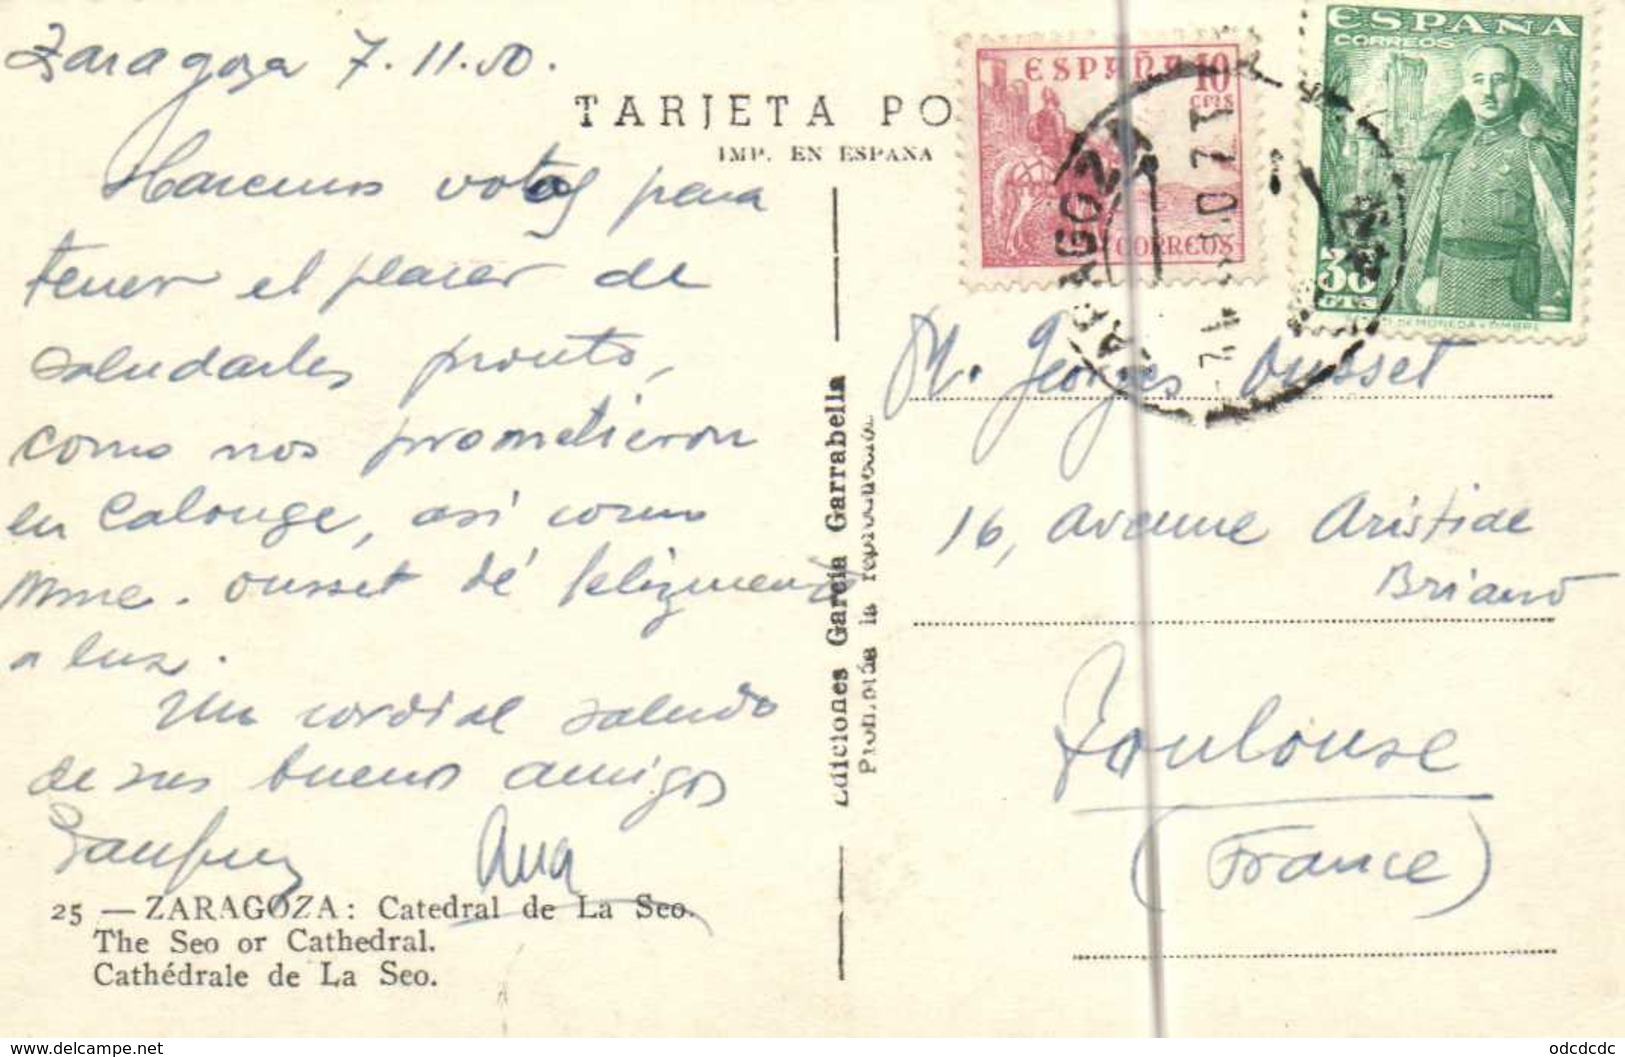 Zaragoza 7.11.50.
TARJETA PO
IMP. EN ESPAÑA
Haremos votos para
tener el placer de
saludarles pronto,
como nos prometieron
en Calonge, así como
Mme. Ousset dé felizmente
a luz.
Un cordial saludo
de sus buenos amigos
Ana
25 — ZARAGOZA: Catedral de La Seo.
The Seo or Cathedral.
Cathédrale de La Seo.
Ediciones García Garrabella
Prohibida la reproducción
ESPAÑA 10
CTMS
CORREOS
ESPAÑA
CORREOS
CTS
ZARAGOZA
M. Georges Ousset
16, Avenue Aristide
Briand
Toulouse
(France)
www.delcampe.net
odcdcdc